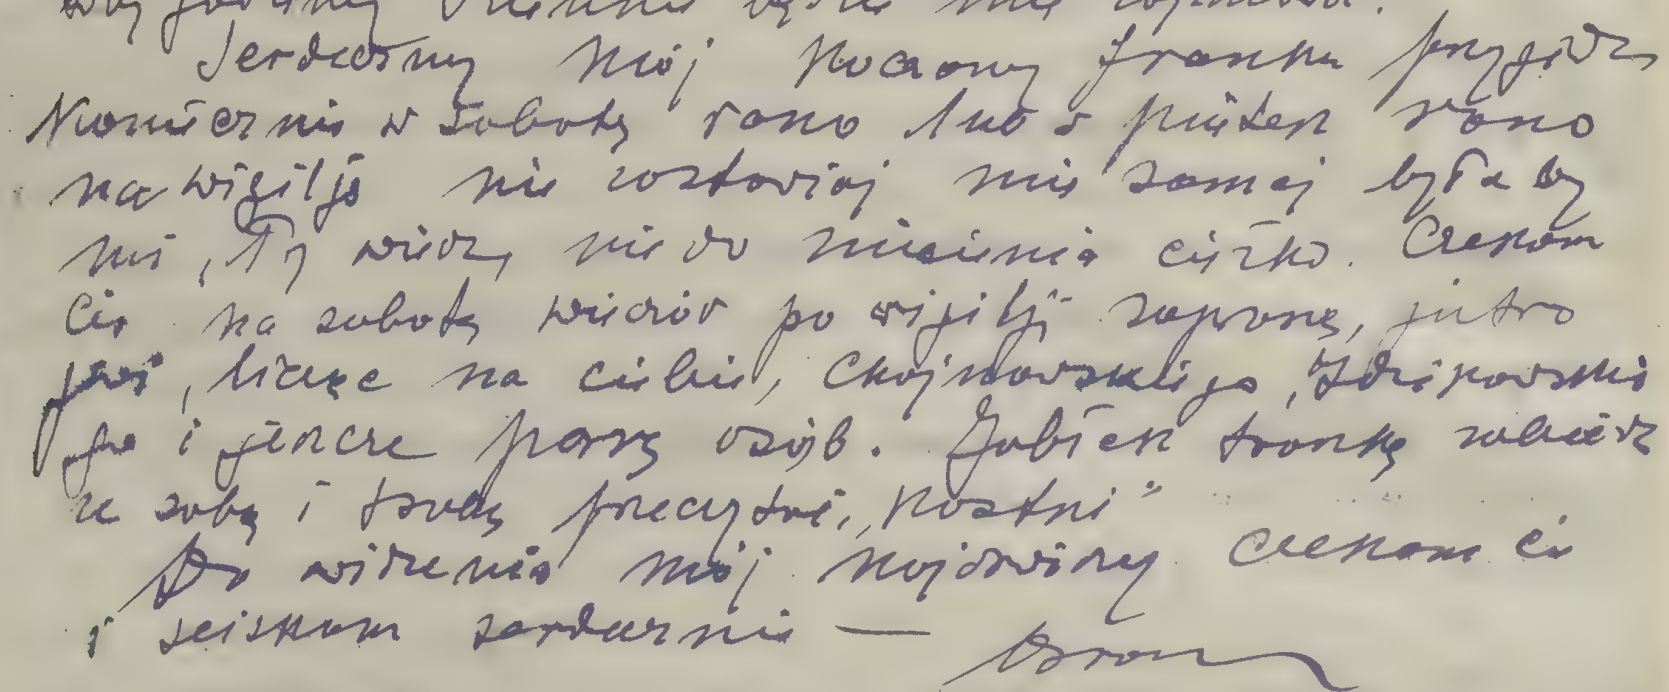 dziennie będzie mnie
Serdeczny mój kochany Franku przyjedź
koniecznie w sobotę rano lub w piątek rano
na wigilję nie zostawiaj mnie samej byłoby
mi, Ty wiesz, nie do zniesienia ciężko. Czekam
Cię na sobotę wieczór po wigilji zaproszę, jutro
liczę na ciebie, Chojnowskiego, Idzikowskie
go i jeszcze parę osób. zabierz
ze sobą i "Kostni"
Do widzenia mój najdroższy czekam cię
i ściskam serdecznie —
Bron